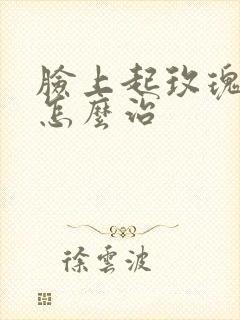 臉上起玫瑰
怎麼治
徐雲波